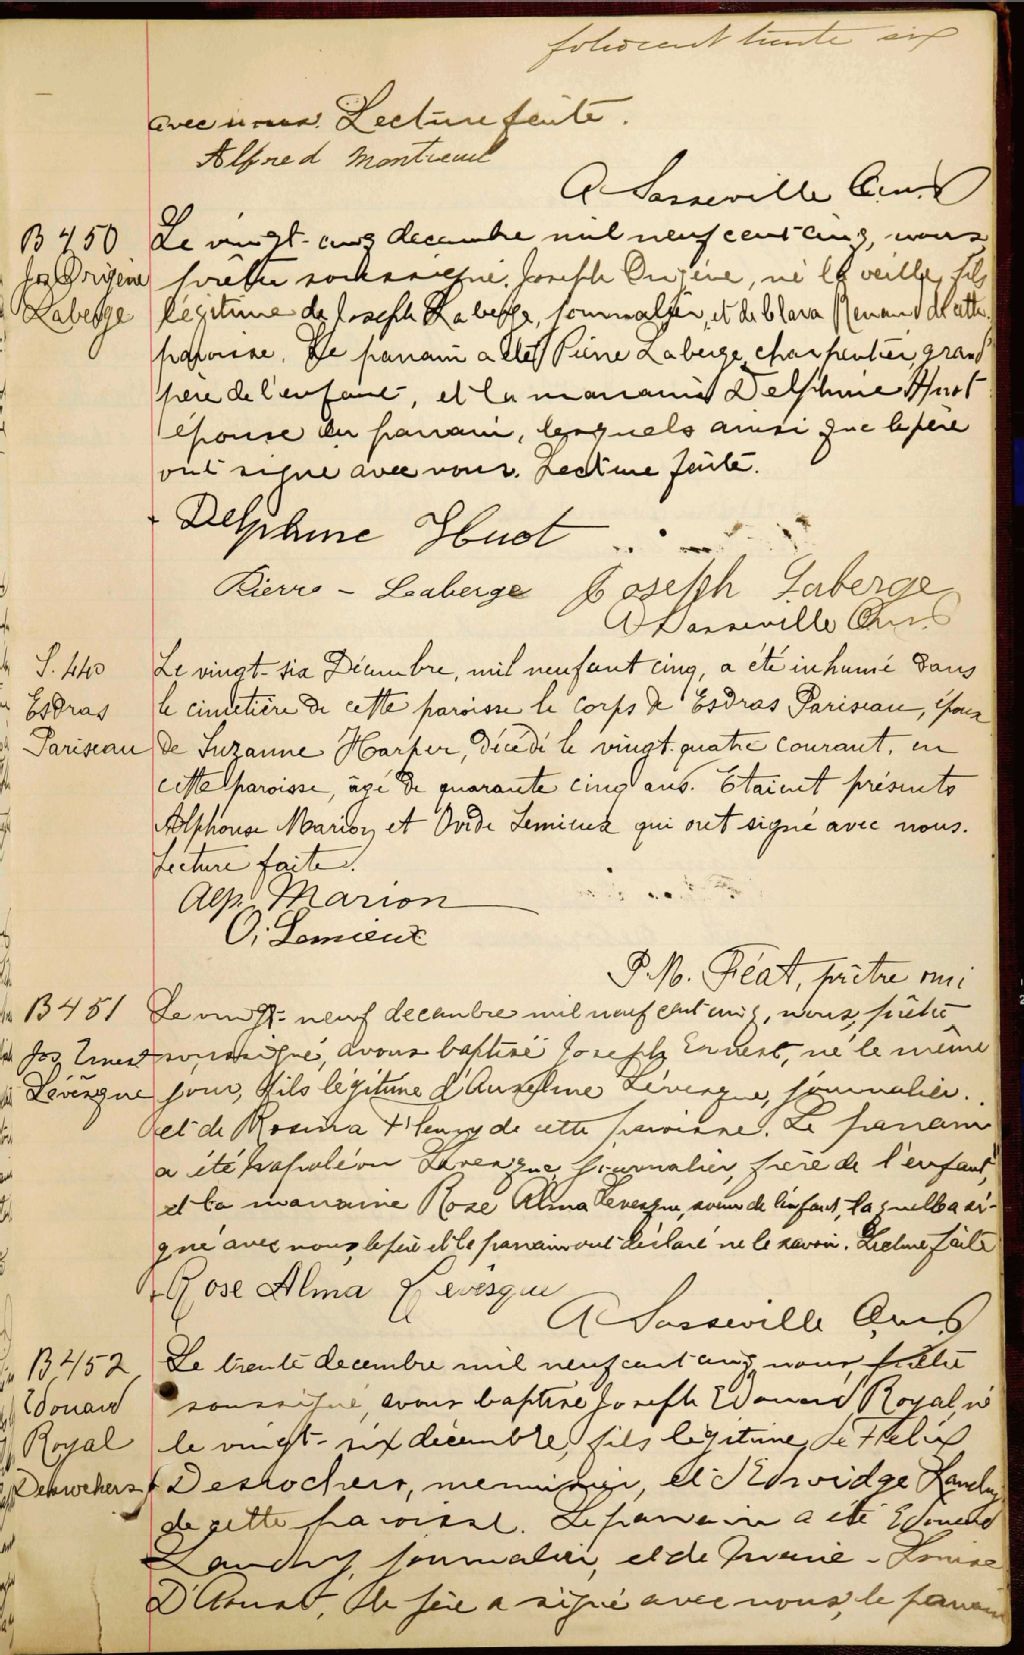 folio cent trente six
avec nous. Lecture faite.
Alfred Montreuil
A Sasseville Curé
B 450
Jos Origène
Laberge
Le vingt-cinq decembre mil neuf cent cinq, nous,
prêtre soussigné, Joseph Origène, né la veille, fils
légitime de Joseph Laberge, journalier, et de Clara Renaud de cette
paroisse. Le parrain a été Pierre Laberge, charpentier, grand
père de l'enfant, et la marraine Delphine Huot
épouse du parrain, lesquels ainsi que le père
ont signé avec nous. Lecture faite.
Delphine Huot
Pierre - Laberge Joseph Laberge
A Sasseville Curé
S. 440
Esdras
Pariseau
Le vingt-six Décembre, mil neuf cent cinq, a été inhumé dans
le cimetière de cette paroisse le corps de Esdras Pariseau, époux
de Suzanne Harper, décédé le vingt-quatre courant, en
cette paroisse, âgé de quarante cinq ans. Etaient présents
Alphonse Marion et Ovide Lemieux qui ont signé avec nous.
Lecture faite.
Alp. Marion
O. Lemieux
P. M. Féat, prêtre omi
B 451
Jos Ernest
Lévêsque
Le vingt-neuf decembre mil neuf cent cinq, nous, prêtre
soussigné, avons baptisé Joseph Ernest, né le même
jour, fils légitime d'Anselme Lévesque, journalier.
et de Rosina Fleury de cette paroisse. Le parrain
a été Napoléon Levesque, journalier, frère de l'enfant,
et la marraine Rose Alma Levesque, soeur de l'enfant, laquelle a si-
gné avec nous, le père et le parrain ont déclaré ne le savoir. Lecture faite
Rose Alma Levêsque
A Sasseville Curé
B 452
Edouard
Royal
Desrochers
Le trente decembre mil neuf cent cinq nous prêtre
soussigné, avons baptisé Joseph Edouard Royal, né
le vingt-six décembre, fils légitime de Felix
Desrochers, menuisier, et d'Edwidge Landry
de cette paroisse. Le parrain a été Edouard
Landry, journalier, et de Marie-Louise
D'Aoust, le père a signé avec nous, le parrain